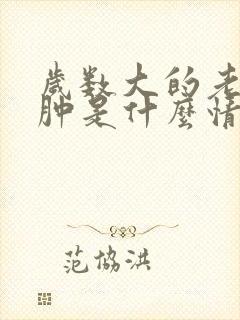 歲数大的老
肿是什麼情
范協洪